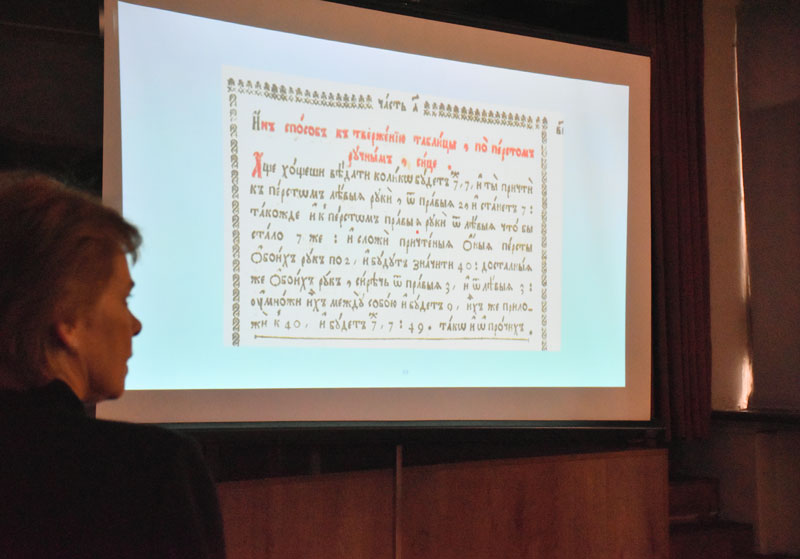 часть а҃
И҆́нъ спо́собъ къ тверже́нїю табли́цы , по̀ пе́рстомъ
рꙋ́чнымъ , си́це .
А҆́ще хо́щеши вѣ́дати коли́кѡ бꙋ́детъ 7҃, 7, и҆ ты̀ причтѝ
къ пе́рстѡмъ лѣ́выѧ рꙋкѝ , ѿ пра́выѧ 2 и҆ ста́нетъ 7 :
та́кожде и҆ к̾ пе́рстѡмъ пра́выѧ рꙋкѝ ѿ лѣ́выѧ что́ бы
ста́ло 7 же : и҆ сложѝ причте́ныѧ ѻ҆́ныѧ пе́рсты
ѻ҆бои́хъ рꙋ́къ по 2 , и҆ бꙋ́дꙋтъ зна́чити 40 : доста́лныѧ
же ѻ҆бои́хъ рꙋ́къ , си́рѣчь ѿ пра́выѧ 3 , и҆ ѿ лѣ́выѧ 3 :
ᲂу҆мно́жи и҆̀хъ междꙋ̀ собо́ю и҆ бꙋ́детъ 9 , и҆́хъ же прило-
жѝ к̾ 40 , и҆ бꙋ́детъ 7҃, 7 : 49 . та́кѡ и҆ ѡ҆ про́чихъ .